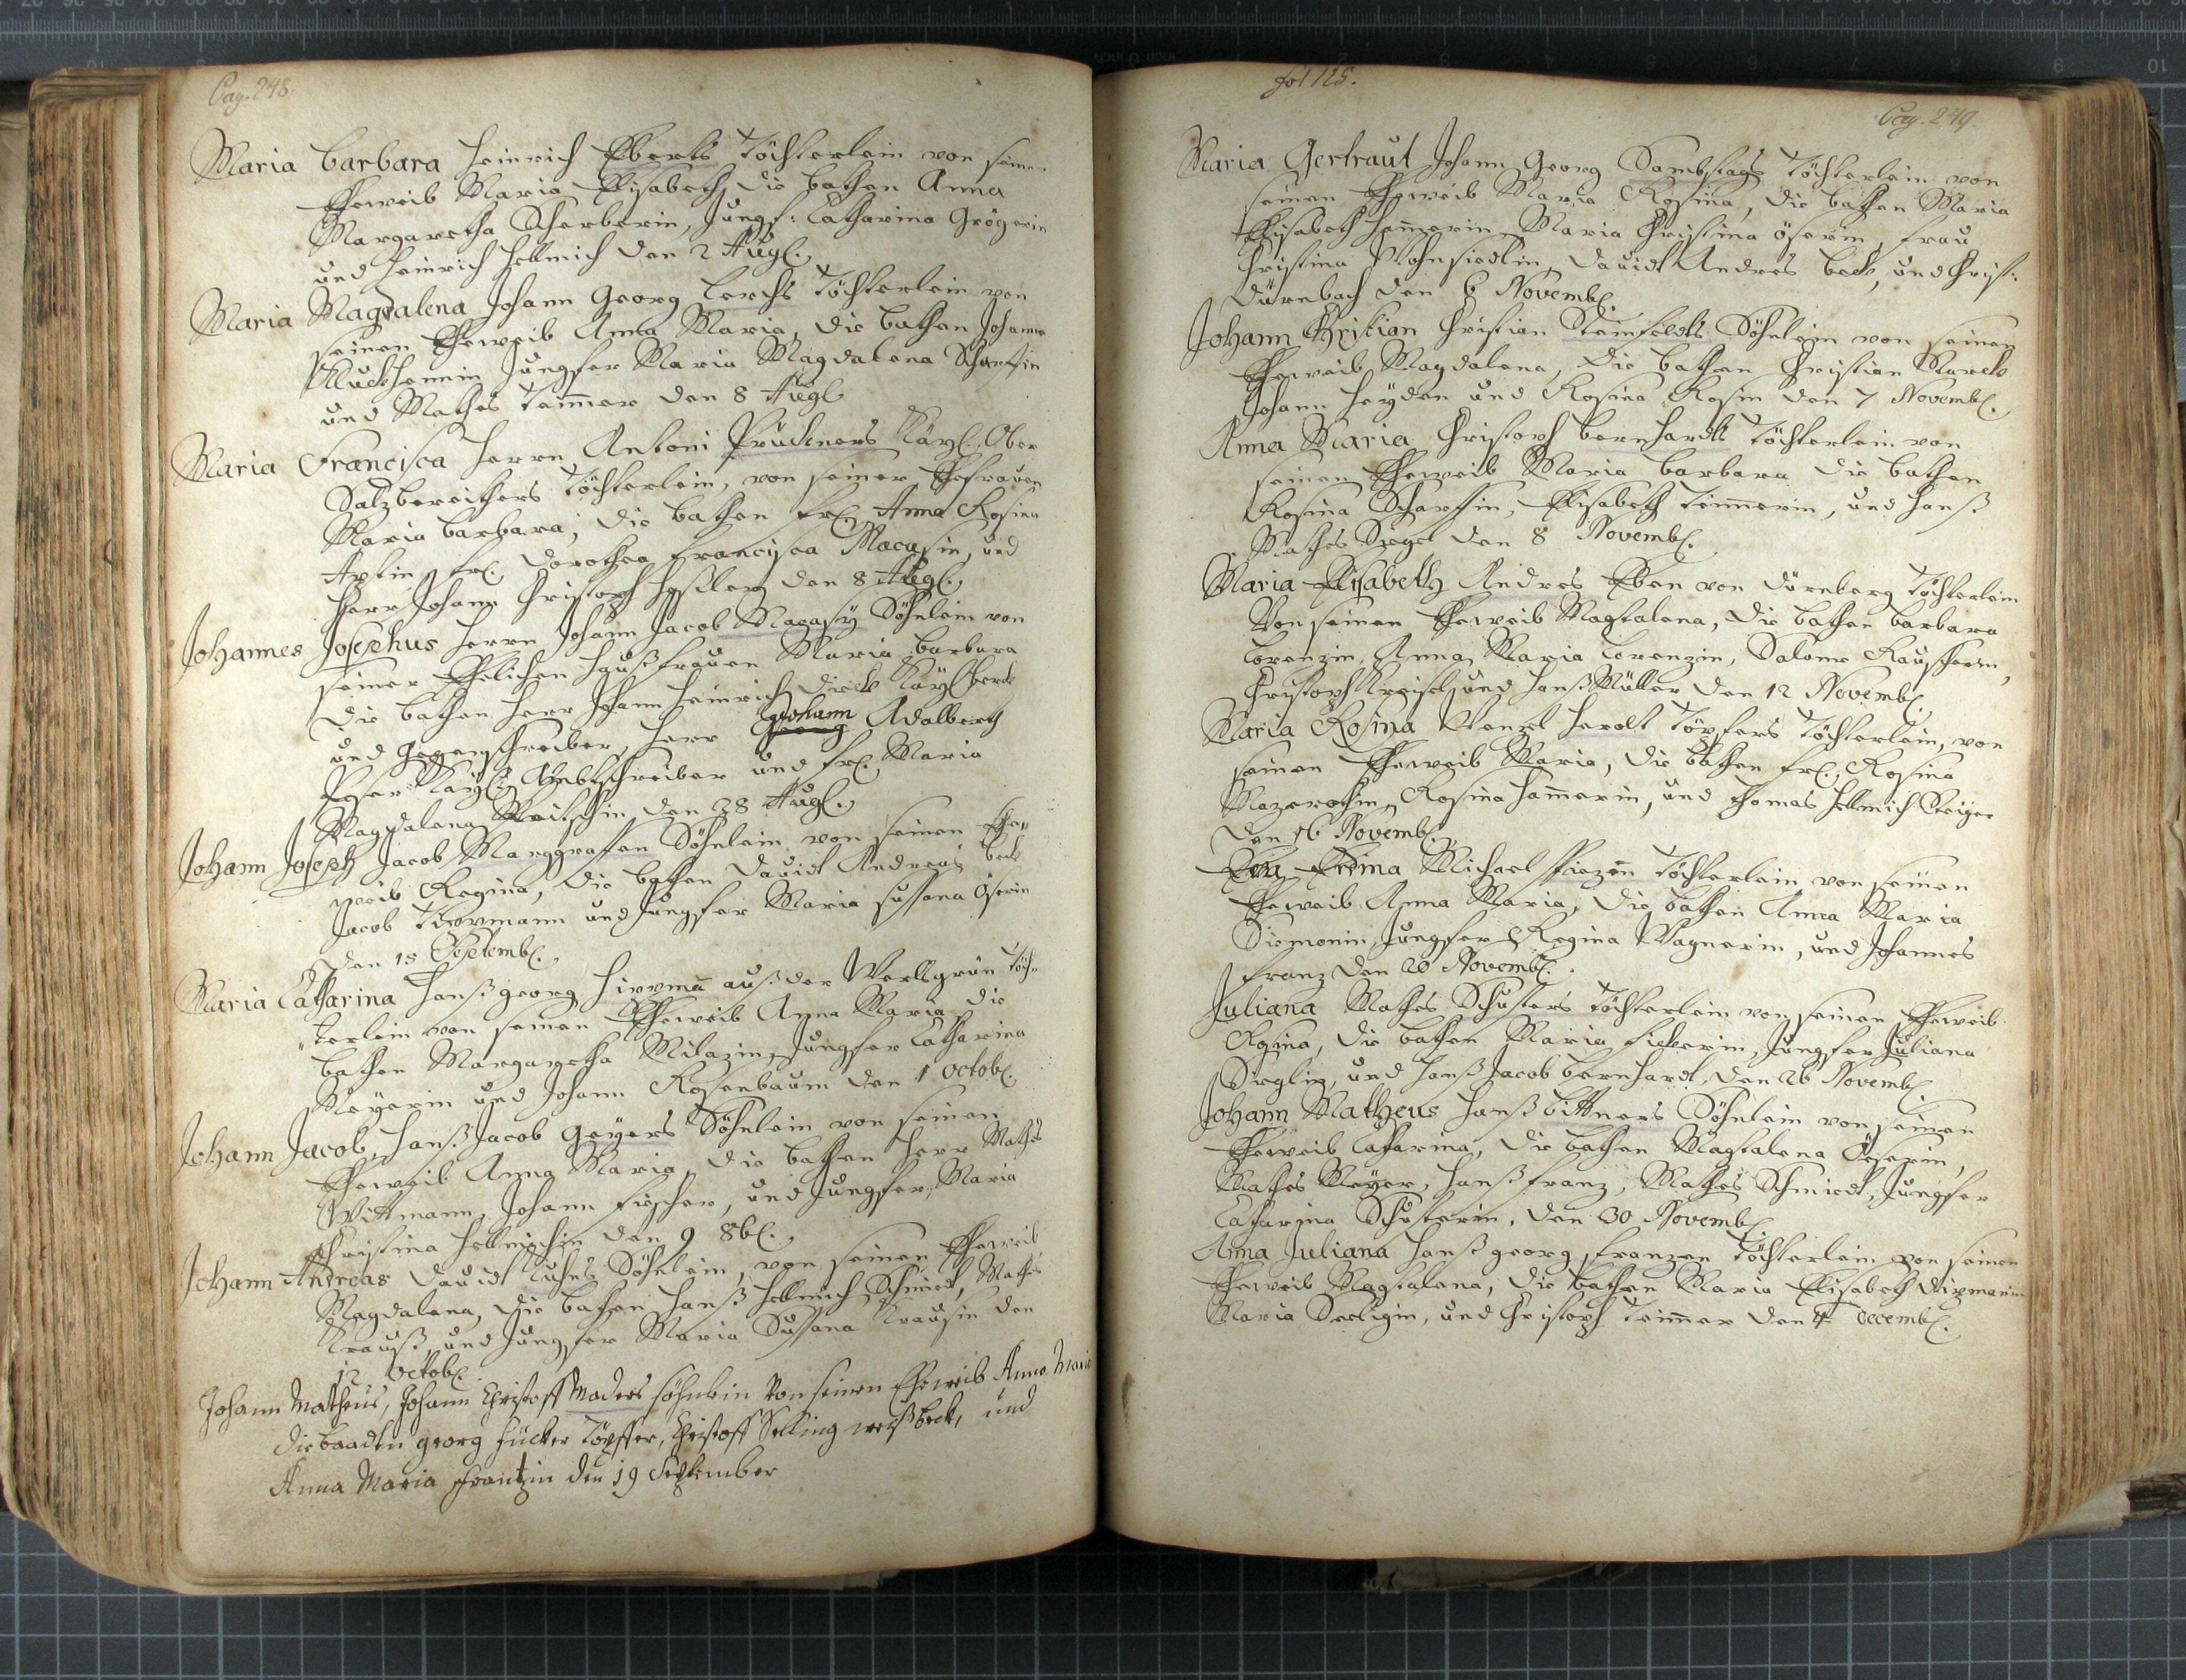 Pag. 248
Maria Barbara Heinrich Eberts Töchterlein von seinen
Eheweib Maria Elisabeth, die bathen Anna
Margaretha Scherberin, Jungf: Catharina Grögerin
und Heinrich Hellmich den 2 Aug.
Maria Magdalena Johann Georg Lerchs Töchterlein von
seinen Eheweib Anna Maria, die bathen Johanna
Jungfer Maria Magdalena Scharffin
und Mathes Temmer den 8 Aug.
Maria Francisca Herrn Antoni Pruckners Kayl. Ober
Saltzbereithers Töchterlein, von seiner Ehefrauen
Maria Barbara, die bathen Fr. Anna Rosina
Fr. Dorothea Francisca Macasin, und
Herr Johann Christoph den 8 Aug.
Johannes Josephus Herrn Johann Jacob Macasy Söhnlein von
seiner Ehelichen Haußfrauen Maria Barbara
die bathen Herr Johann Heinrich Kayl.
und gegenschreiber, Herr Johann Adalberth
Kayl. Ambtschreiber und Fr. Maria
Magdalena den 28 Aug.
Johann Joseph Jacob Marggraffen Söhnlein von seinen Ehe„
weib Regina, die bathen David Andreas Beck
Jacob und Jungfer Maria Sussana Öserin
den 15 Septemb.
Maria Catharina Hanß Georg auß der Töch„
„terlein von seinen Eheweib Anna Maria, die
bathen Margaretha Milazin, Jungfer Catharina
Meyerin und Johann Rosenbaum den 1 Octob.
Johann Jacob, Hanß Jacob Geyers Söhnlein von seinen
Eheweib Anna Maria, die bathen Herr Mathes
Wittmann, Johann Fischer, und Jungfer Maria
Christina Hellmichin den 9 8b.
Johann Andreas David Söhnlein, von seinen Eheweib
Magdalena, die bathen Hanß Hellmich Schmied, Mathes
Krauß, und Jungfer Maria Sussana Krausin den
12 Octob.
Johann Matheus, Johann Christoff Maders söhnlein Von seinen Eheweib Anna Maria
die baadtn Georg Fücker Töpffer, Christoff Selling weißbeck, und
Anna Maria Frantzin den 19 September
fol 125.
Pag. 249
Maria Gertraut Johann Georg Sambstags Töchterlein von
seinen Eheweib Maria Rosina, die bathen Maria
Elisabeth Hamerin, Maria Christina Öserin, Frau
Christina David Andres Beck, und Christ:
Dürnbach den 6 Novemb.
Johann Christian Christian Steinfelds Söhnlein von seinen
Eheweib Magdalena, die bathen Christian Marck
Johann Heyden und Rosina Rosin den 7 Novemb.
Anna Maria Christoph Bernhardts Töchterlein von
seinen Eheweib Maria Barbara die bathen
Rosina Scharffin, Elisabeth Temmerin, und Hanß
Mathes Siegel den 8 Novemb.
Maria Elisabeth Andres Eben von Dürnberg Töchterlein
Von seinen Eheweib Magdalena, die bathen Barbara
Lorenzin, Anna Maria Lorenzin, Salome Rauscherin,
Christoph Kreisel, und Hanß Müller den 12 Novemb.
Maria Rosina Wenzel Herolt Töpfers Töchterlein, von
seinen Eheweib Maria, die bathen Fr. Rosina
Rosina Hamerin, und Thomas Hellmich Steiger
den 16 Novemb.
Eva Michael Töchterlein von seinen
Eheweib Anna Maria, die bathen Anna Maria
Siemonin, Jungfer Regina Wagnerin, und Johannes
Franz den 20 Novemb.
Juliana Mathes Schusters Töchterlein von seinen Eheweib
Rosina, die bathen Maria Fickerin, Jungfer Juliana
Sieglin, und Hanß Jacob Bernhardt, den 26 Novemb.
Johann Matheus Hanß Bittners Söhnlein von seinen
Eheweib Catharina, die bathen Magdalena Öserin,
Mathes Meyer, Hanß Franz, Mathes Schmiedt, Jungfer
Catharina Schusterin, den 30 Novemb.
Anna Juliana Hanß Georg Franzen Töchterlein von seinen
Eheweib Magdalena, die bathen Maria Elisabeth
Maria Seeligin, und Christoph Temmer den 4 Decemb.